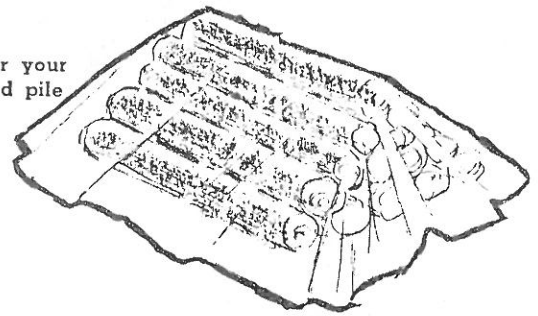 r your
d pile